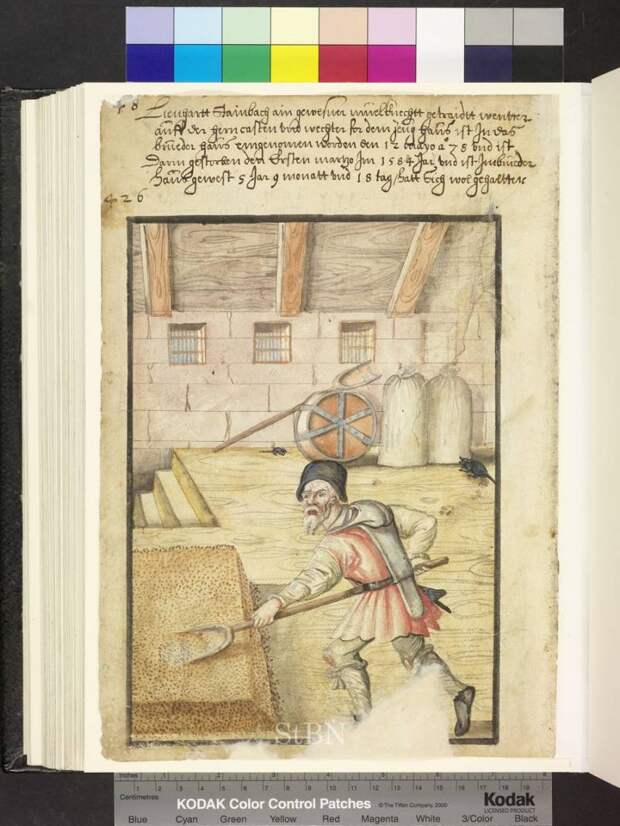 48
Lienhartt Stainbach ain gewesner müelknechtt getraidtt wentter
auff der hern casten vnd wechter for dem zeug haüs ist In das
brueder haüs eingenomen worden den 12 mayo a 78 vnd ist
Darin gestorben den Ersten martzo Im 1584 Jar vnd ist Im brüder
haüs gewest 5 Jar 9 monatt vnd 18 tag, hatt sich wol gehaltten
426
StBN
Inches
Centimetres
1 2 3 4 5 6 7 8 9 10 11 12 13 14 15 16 17 18 19
KODAK Color Control Patches © The Tiffen Company, 2000 Kodak
LICENSED PRODUCT
Blue Cyan Green Yellow Red Magenta White 3/Color Black